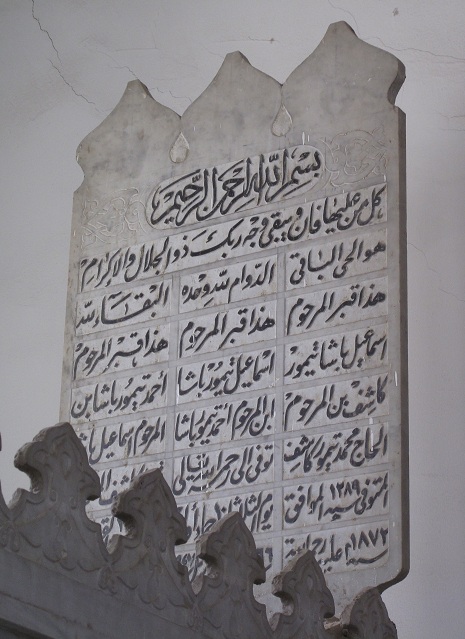 بسم الله الرحمن الرحيم
كل من عليها فان ويبقى وجه ربك ذو الجلال والإكرام
هو الحي الباقي
هذا قبر المرحوم
اسماعيل باشا تيمور
كاشف بن المرحوم
الحاج محمد تيمور كاشف
المتوفى سنة ١٢٨٩ الموافق
سنة ١٨٧٢م عليه
الدوام لله وحده
هذا قبر المرحوم
اسماعيل تيمور باشا
ابن المرحوم احمد تيمور باشا
توفى الى رحمة الله تعالى
يوم الثلاثاء
البقاء لله
هذا قبر المرحوم
احمد تيمور باشا بن
المرحوم اسماعيل باشا